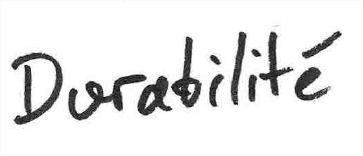 Durabilité